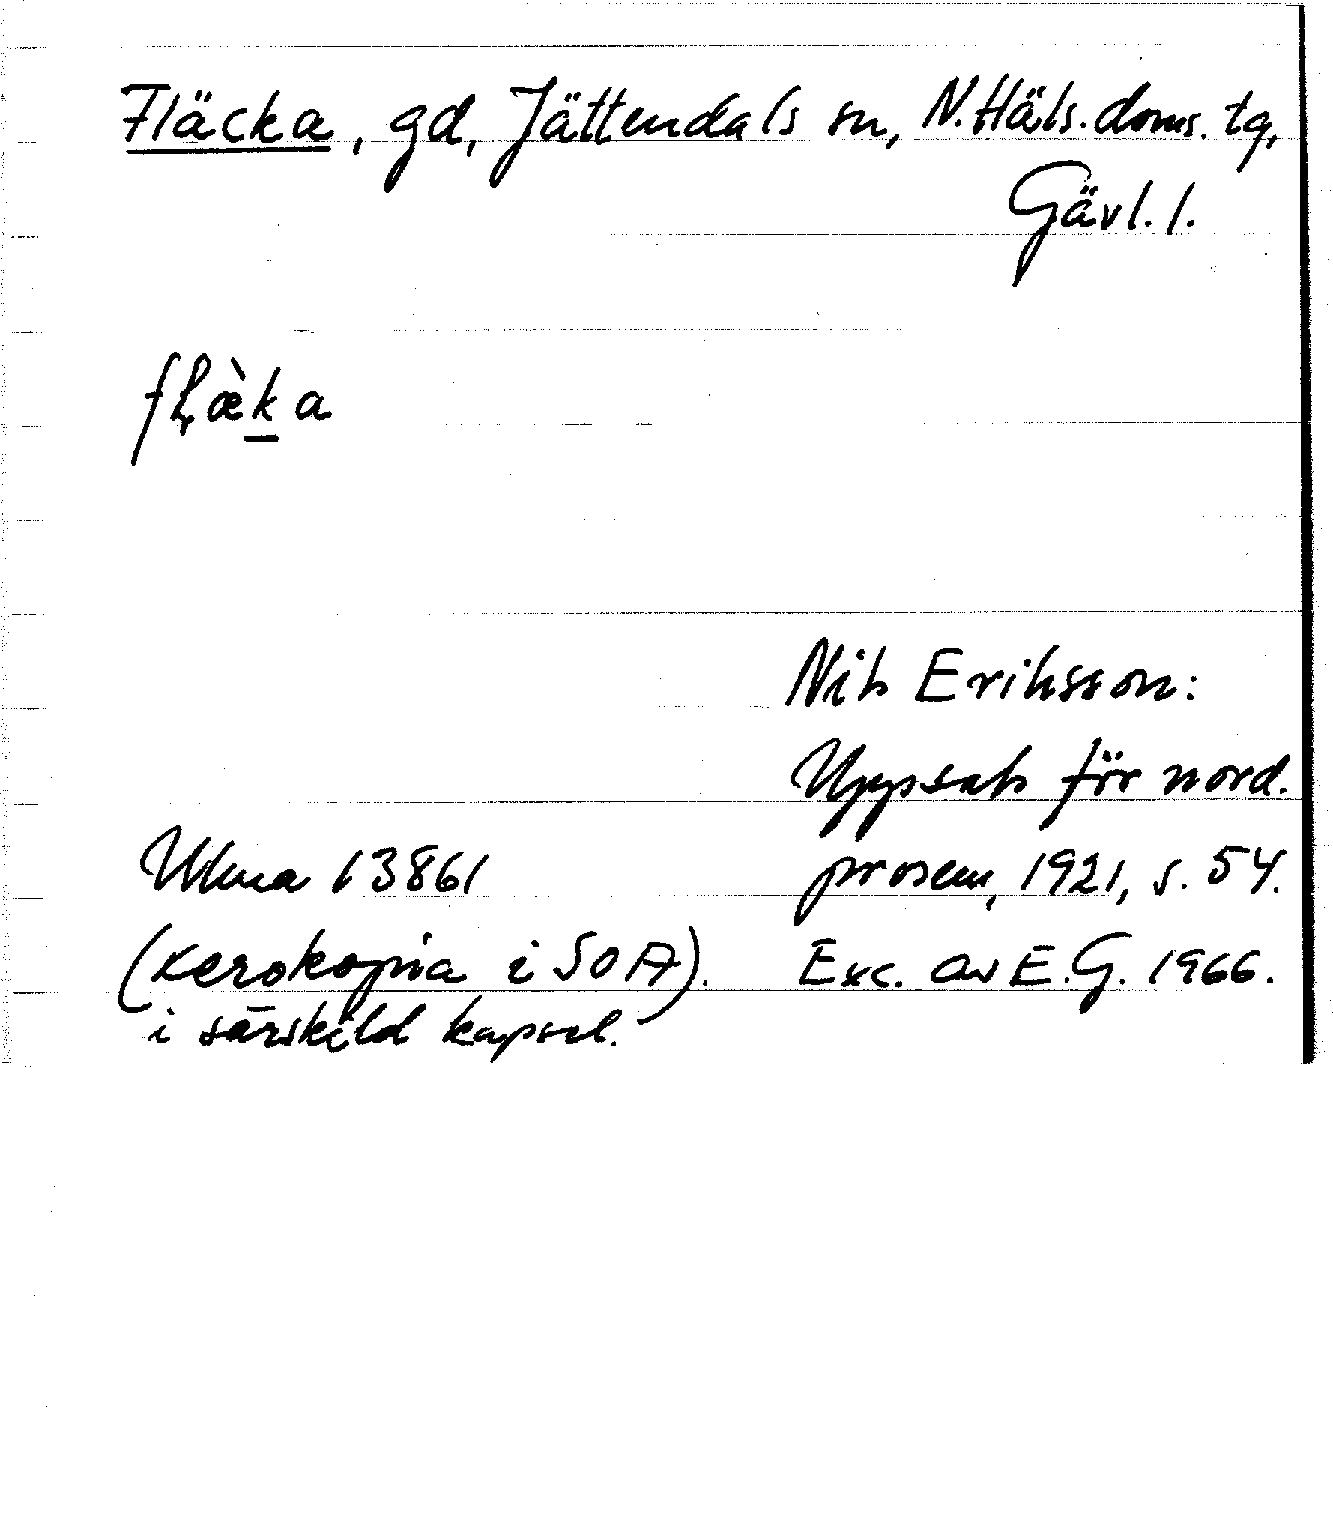 Fläcka, gd, Jättendals sn, N. Häls. doms. tg,
Gävl. l.
flæ̀ka
Nils Eriksson:
Uppsats för nord.
Ulma 13861 prosem, 1921, s. 54.
(xerokopia i SOA). Exc. av E.G. 1966.
i särskild kapsel.